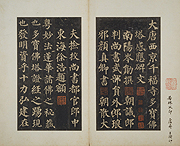 大唐西京千福寺多寶佛
塔感應碑文
南陽岑勛撰朝議郎
判尚書武部員外郎琅
邪顏真卿書朝散大
夫撿挍尚書都官郎中
東海徐浩題額
粵妙法蓮華諸佛之秘藏
也多寶佛塔證經之踴現
也發明資乎十力弘建在